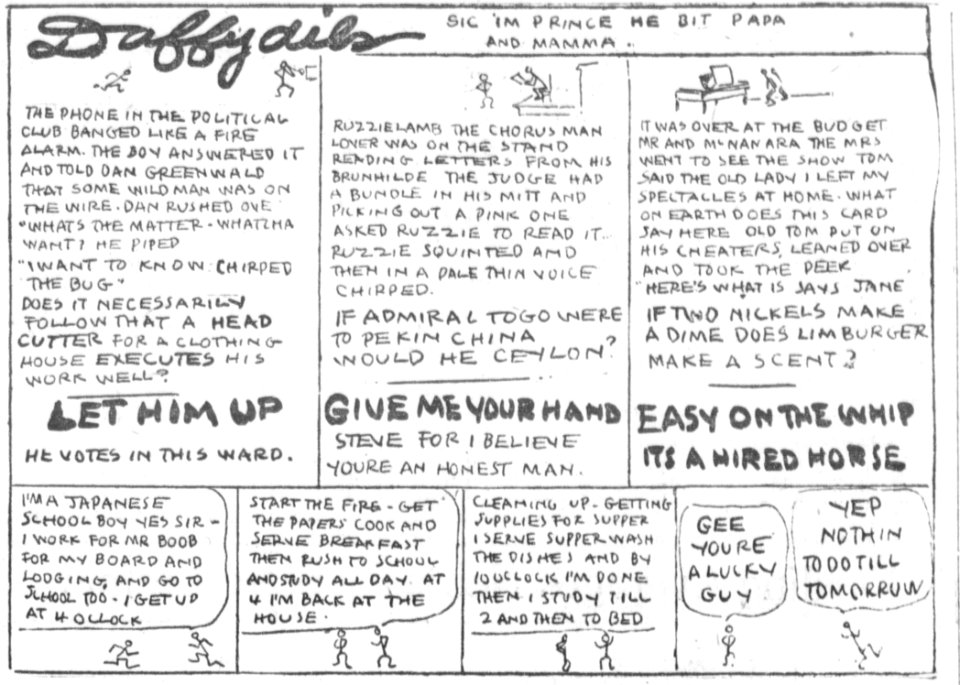 Daffydils
SIC 'IM PRINCE HE BIT PAPA
AND MAMMA.
THE PHONE IN THE POLITICAL
CLUB BANGED LIKE A FIRE
ALARM. THE BOY ANSWERED IT
AND TOLD DAN GREENWALD
THAT SOME WILD MAN WAS ON
THE WIRE. DAN RUSHED OVE
"WHATS THE MATTER - WHATTHA
WANT? HE PIPED
"I WANT TO KNOW CHIRPED
THE BUG"
DOES IT NECESSARILY
FOLLOW THAT A HEAD
CUTTER FOR A CLOTHING
HOUSE EXECUTES HIS
WORK WELL?
LET HIM UP
HE VOTES IN THIS WARD.
RUZZIELAMB THE CHORUS MAN
LOVER WAS ON THE STAND
READING LETTERS FROM HIS
BRUNHILDE THE JUDGE HAD
A BUNDLE IN HIS MITT AND
PICKING OUT A PINK ONE
ASKED RUZZIE TO READ IT..
RUZZIE SQUINTED AND
THEN IN A PALE THIN VOICE
CHIRPED.
IF ADMIRAL TOGO WERE
TO PEKIN CHINA
WOULD HE CEYLON?
GIVE ME YOUR HAND
STEVE FOR I BELIEVE
YOURE AN HONEST MAN.
IT WAS OVER AT THE BUDGET
MR AND McNAMARA THE MRS
WENT TO SEE THE SHOW TOM
SAID THE OLD LADY I LEFT MY
SPECTACLES AT HOME. WHAT
ON EARTH DOES THIS CARD
SAY HERE OLD TOM PUT ON
HIS CHEATERS, LEANED OVER
AND TOOK THE PEEK
"HERE'S WHAT IS SAYS JANE
IF TWO NICKELS MAKE
A DIME DOES LIMBURGER
MAKE A SCENT?
EASY ON THE WHIP
ITS A HIRED HORSE
I'M A JAPANESE
SCHOOL BOY YES SIR -
I WORK FOR MR BOOB
FOR MY BOARD AND
LODGING, AND GO TO
SCHOOL TOO - I GET UP
AT 4 OCLOCK
START THE FIRE - GET
THE PAPERS COOK AND
SERVE BREAKFAST
THEN RUSH TO SCHOOL
AND STUDY ALL DAY. AT
4 I'M BACK AT THE
HOUSE.
CLEANING UP - GETTING
SUPPLIES FOR SUPPER
I SERVE SUPPER WASH
THE DISHES AND BY
10 OCLOCK I'M DONE
THEN I STUDY TILL
2 AND THEN TO BED
GEE
YOURE
A LUCKY
GUY
YEP
NOTHIN
TO DO TILL
TOMORROW